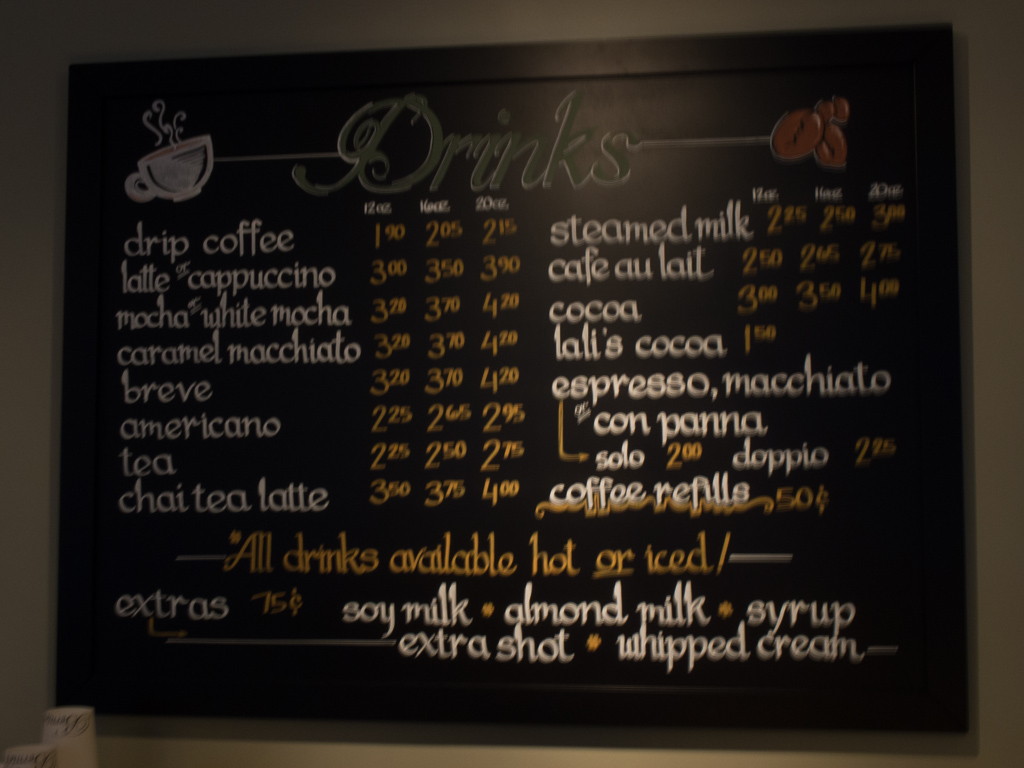 Drinks
12oz. 16oz. 20oz.
drip coffee 1 90 2 05 2 15
latte or cappuccino 3 00 3 50 3 90
mocha or white mocha 3 20 3 70 4 20
caramel macchiato 3 20 3 70 4 20
breve 3 20 3 70 4 20
americano 2 25 2 65 2 95
tea 2 25 2 50 2 75
chai tea latte 3 50 3 75 4 00
12oz. 16oz. 20oz.
steamed milk 2 25 2 50 3 00
cafe au lait 2 50 2 65 2 75
cocoa 3 00 3 50 4 00
lali's cocoa 1 50
espresso, macchiato
or con panna
solo 2 00 doppio 2 25
coffee refills 50¢
*All drinks available hot or iced!
extras 75¢ soy milk * almond milk * syrup
extra shot * whipped cream